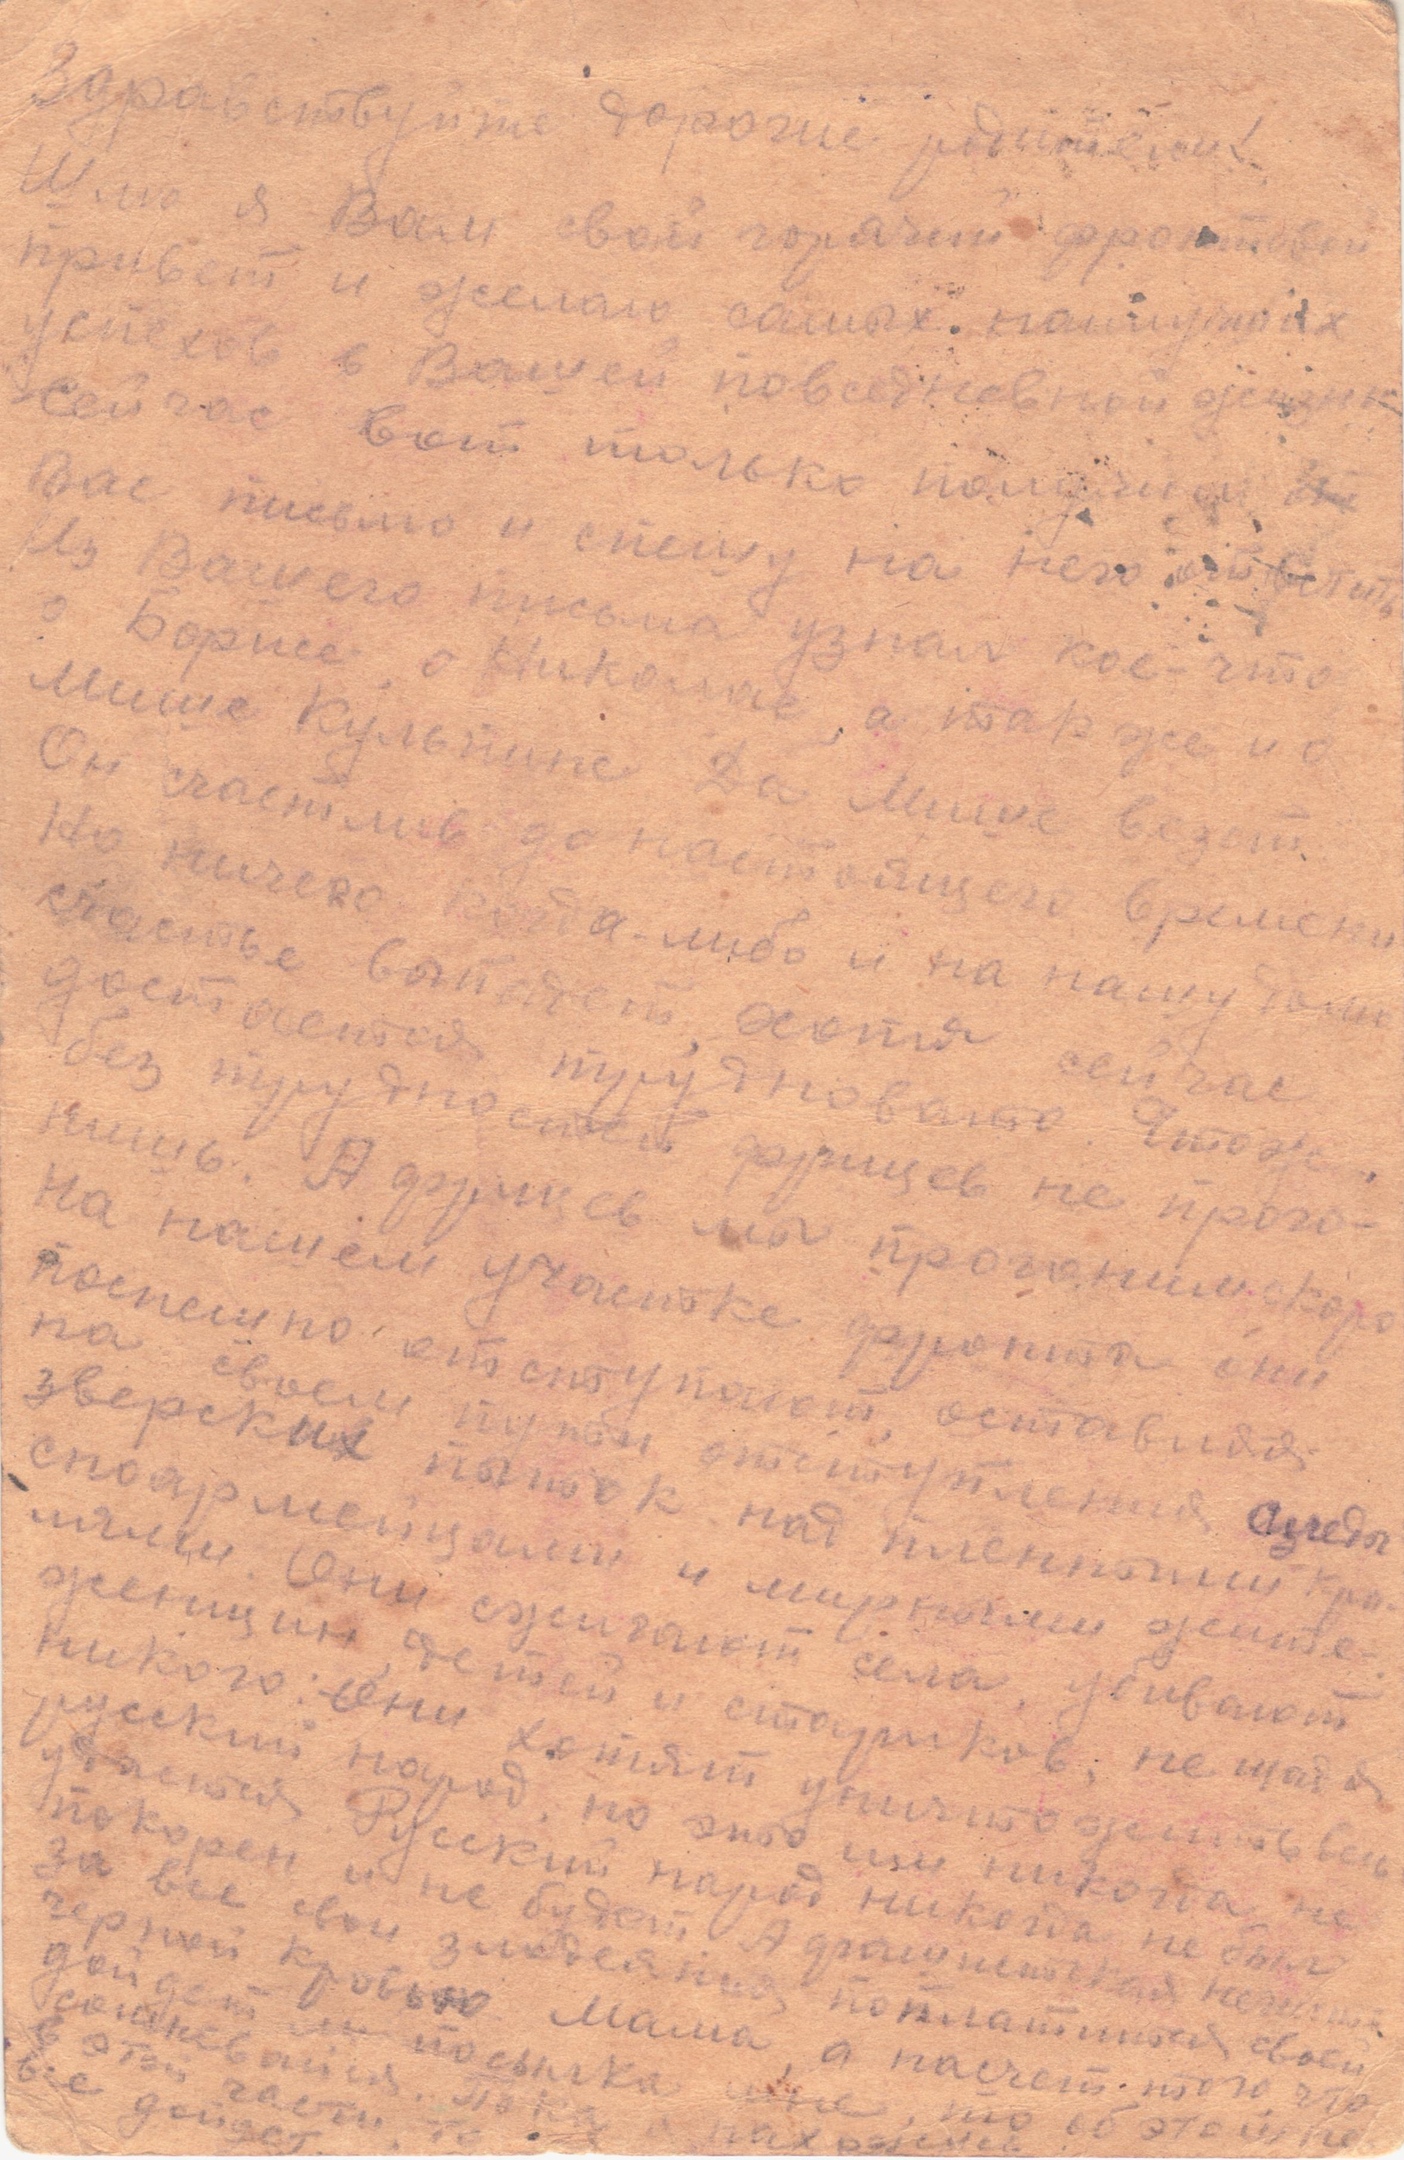 Здравствуйте дорогие родители!
Шлю я Вам свой горячий фронтовой
привет и желаю самых наилучших
успехов в Вашей повседневной жизни
Сейчас вот только получил от
Вас письмо и спешу на него ответить
Из Вашего письма узнал кое-что
о Борисе, о Николае, а так же и о
Мише Кульпине Да Мише везет.
Он счастлив до настоящего времени
Но ничего когда-либо и на нашу долю
счастье выпадет, хотя сейчас
достается трудновато. Чтож,
без трудностей фрицев не прого-
нишь. А фрицев мы прогоним скоро
На нашем участке фронта они
поспешно отступают, оставляя
на своем пути отступления следы
зверских пыток над пленными кра-
сноармейцами и мирными жите-
лями. Они сжигают села, убивают
женщин, детей и стариков, не щадя
никого. Они хотят уничтожить весь
русский народ, но это им никогда не
удастся. Русский народ никогда не был
покорен и не будет. А фашистская нечисть
за все свои злодеяния поплатится своей
черной кровью Мама, а насчет того, что
дойдет ли посылка мне, то об этом не
сомневайся. Пока я нахожусь
в этой части, то
все дойдет.